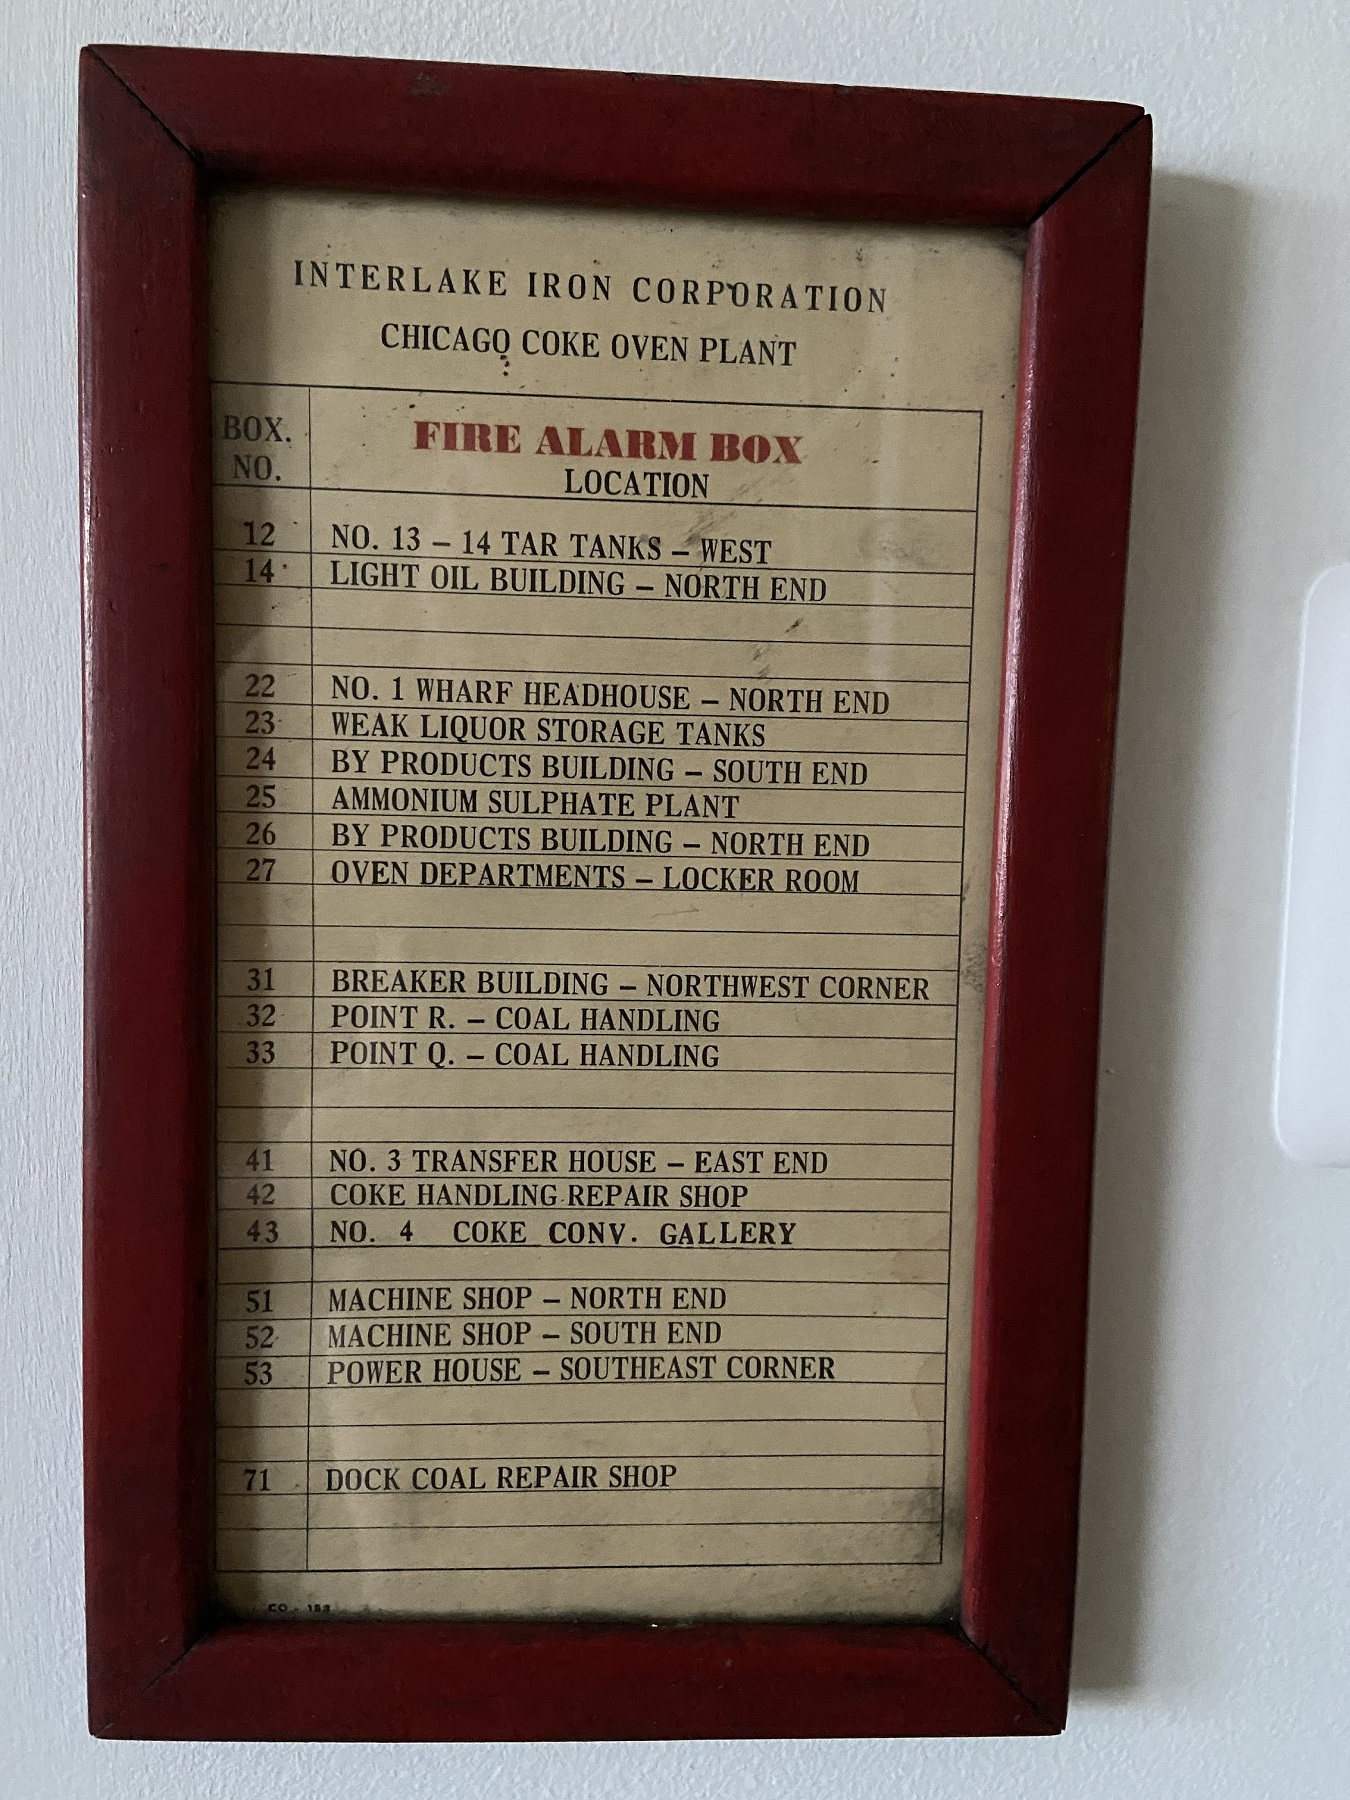 INTERLAKE IRON CORPORATION
CHICAGO COKE OVEN PLANT
BOX. NO. FIRE ALARM BOX LOCATION
12 NO. 13 – 14 TAR TANKS – WEST
14 LIGHT OIL BUILDING – NORTH END
22 NO. 1 WHARF HEADHOUSE – NORTH END
23 WEAK LIQUOR STORAGE TANKS
24 BY PRODUCTS BUILDING – SOUTH END
25 AMMONIUM SULPHATE PLANT
26 BY PRODUCTS BUILDING – NORTH END
27 OVEN DEPARTMENTS – LOCKER ROOM
31 BREAKER BUILDING – NORTHWEST CORNER
32 POINT R. – COAL HANDLING
33 POINT Q. – COAL HANDLING
41 NO. 3 TRANSFER HOUSE – EAST END
42 COKE HANDLING REPAIR SHOP
43 NO. 4 COKE CONV. GALLERY
51 MACHINE SHOP – NORTH END
52 MACHINE SHOP – SOUTH END
53 POWER HOUSE – SOUTHEAST CORNER
71 DOCK COAL REPAIR SHOP